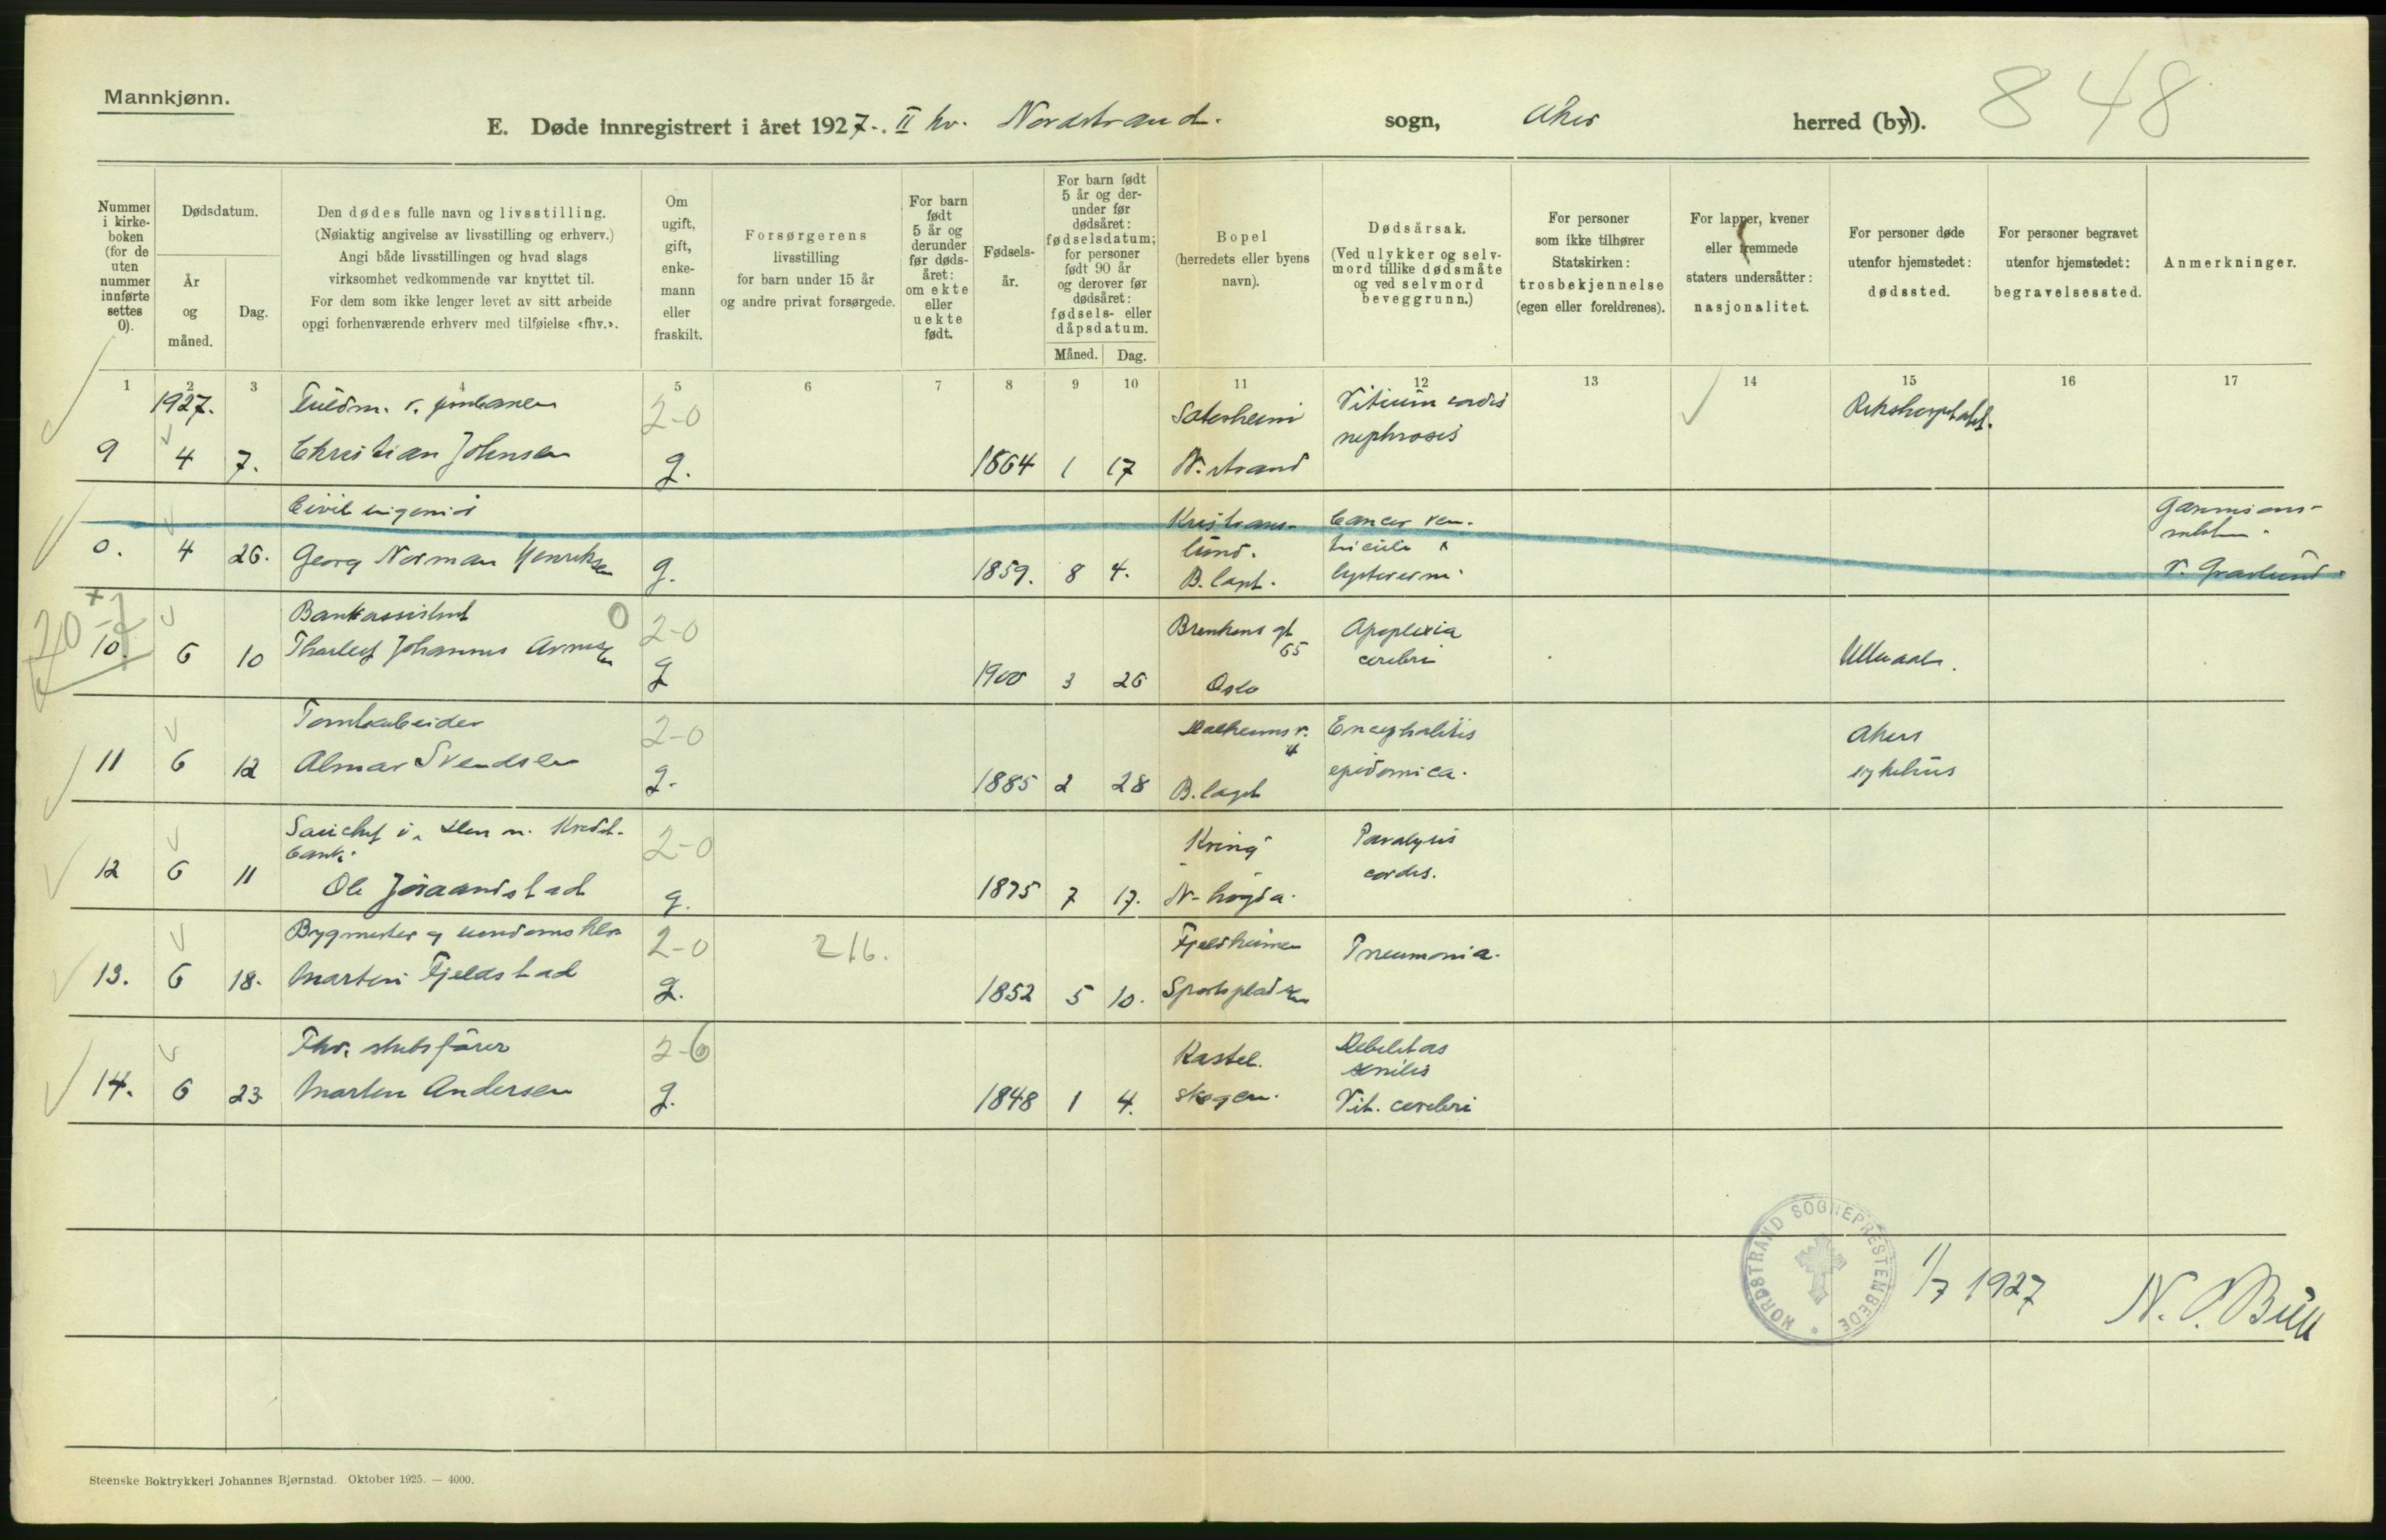 Mannkjønn.
E. Døde innregistrert i året 1927. II kv. Nordstrand. sogn, Aker herred (by). 848
Nummer i kirke-boken (for de uten nummer innførte settes 0).
Dødsdatum.
År og måned.
Dag.
Den dødes fulle navn og livsstilling.
(Nøiaktig angivelse av livsstilling og erhverv.)
Angi både livsstillingen og hvad slags
virksomhet vedkommende var knyttet til.
For dem som ikke lenger levet av sitt arbeide
opgi forhenværende erhverv med tilføielse «fhv.».
Om ugift, gift, enke-mann eller fraskilt.
Forsørgerens
livsstilling
for barn under 15 år
og andre privat forsørgede.
For barn født 5 år og derunder før døds-året: om ekte eller uekte født.
Fødsels-år.
For barn født 5 år og der-under før dødsåret: fødselsdatum; for personer født 90 år og derover før dødsåret: fødsels- eller dåpsdatum.
Måned. Dag.
Bopel
(herredets eller byens
navn).
Dødsårsak.
(Ved ulykker og selv-
mord tillike dødsmåte
og ved selvmord
beveggrunn.)
For personer
som ikke tilhører
Statskirken:
trosbekjennelse
(egen eller foreldrenes).
For lapper, kvener
eller fremmede
staters undersåtter:
nasjonalitet.
For personer døde
utenfor hjemstedet:
dødssted.
For personer begravet
utenfor hjemstedet:
begravelsessted.
Anmerkninger.
1 2 3 4 5 6 7 8 9 10 11 12 13 14 15 16 17
1927. 2-0 Vitium cordis Rikshospitalet.
nephrosis
9 4 7. Christian Johnsen g. 1864 1 17 N. strand
Civil ingeniør Kristians- Cancer ven- Garnisons-
0. 4 26. Georg Norman Henriksen g. 1859. 8 4. lund. B. laget. triculi v. Gravlund.
20
Bankassistent 0 2-0 Apoplexia
10. 6 10 Johannes g 1900 3 26 65 Oslo cerebri Ullevaal.
Tomtearbeider 2-0 Encephalitis Akers
11 6 12 Almar Svendsen g. 1885 2 28 4 B. laget epidemica. sykehus
i Den n. Kredit- 2-0 Paralysis
bank.
12 6 11 Ole g. 1875 7 17. N-høgda. cordis.
Bygmester og 2-0 216. Fjeldheimen Pneumonia.
13. 6 18. Martin Fjeldstad g. 1852 5 10. Sportspladsen
Fhv. 2-6 Kastel- Debilitas
senilis
14. 6 23. Martin Andersen g. 1848 1 4. skogen. Vit. cerebri
NORDSTRAND SOGNEPRESTEMBEDE
1/7 1927 N. Bull
Steenske Boktrykkeri Johannes Bjørnstad. Oktober 1925. — 4000.